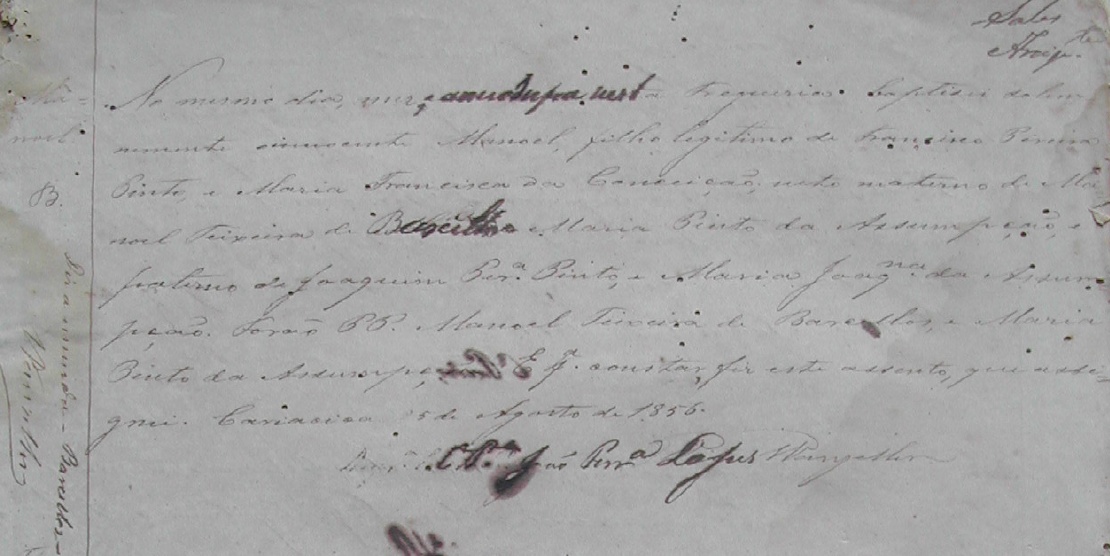 Sales
Ma=
noel
B.
No mesmo dia, mez, e anno supra nesta Freguesia baptisei solem
nemente innocente Manoel, filho legitimo de Francisco Pereira
Pinto, e Maria Francisca da Conceição, neto materno de Ma
noel Teixeira de Barcellos e Maria Pinto da Assumpção, e
paterno de Joaquim Perª Pinto, e Maria Joaqna da Assum=
pção. Forão PP. Manoel Teixeira de Barcellos, e Maria
Pinto da Assumpção E pª constar, fiz este assento, que assi=
gnei. Cariacica 5 de Agosto de 1856.
João Perª Lopes
Barcellos